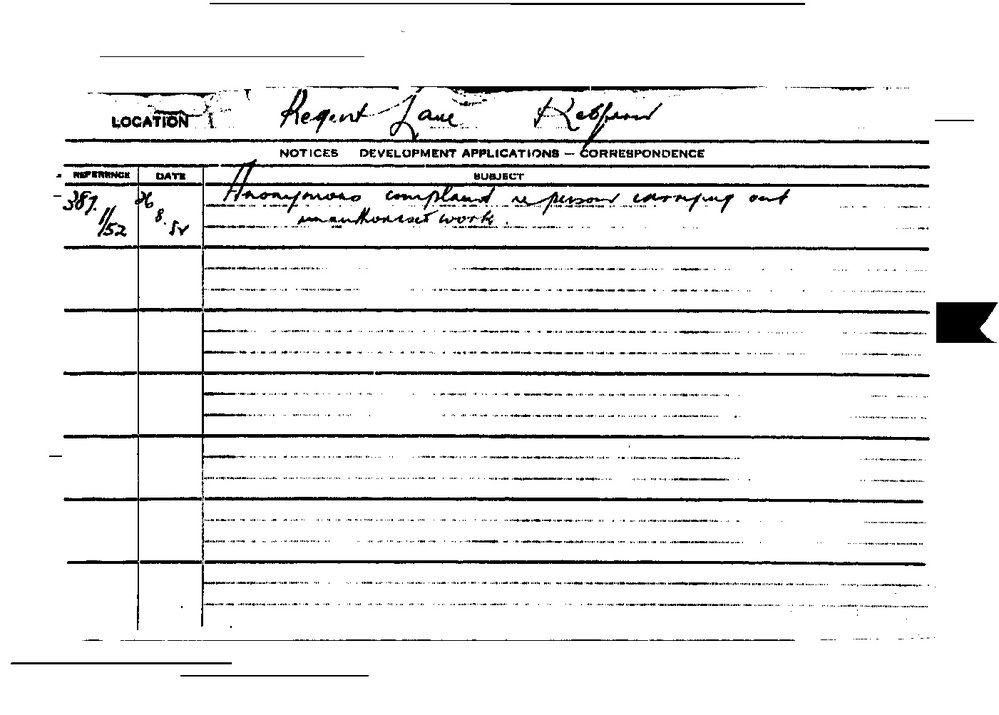 LOCATION Regent Lane
NOTICES DEVELOPMENT APPLICATIONS — CORRESPONDENCE
REFERENCE DATE SUBJECT
387. 26 Anonymous complaint re person carrying out
1/52 8. 52 unauthorised work.